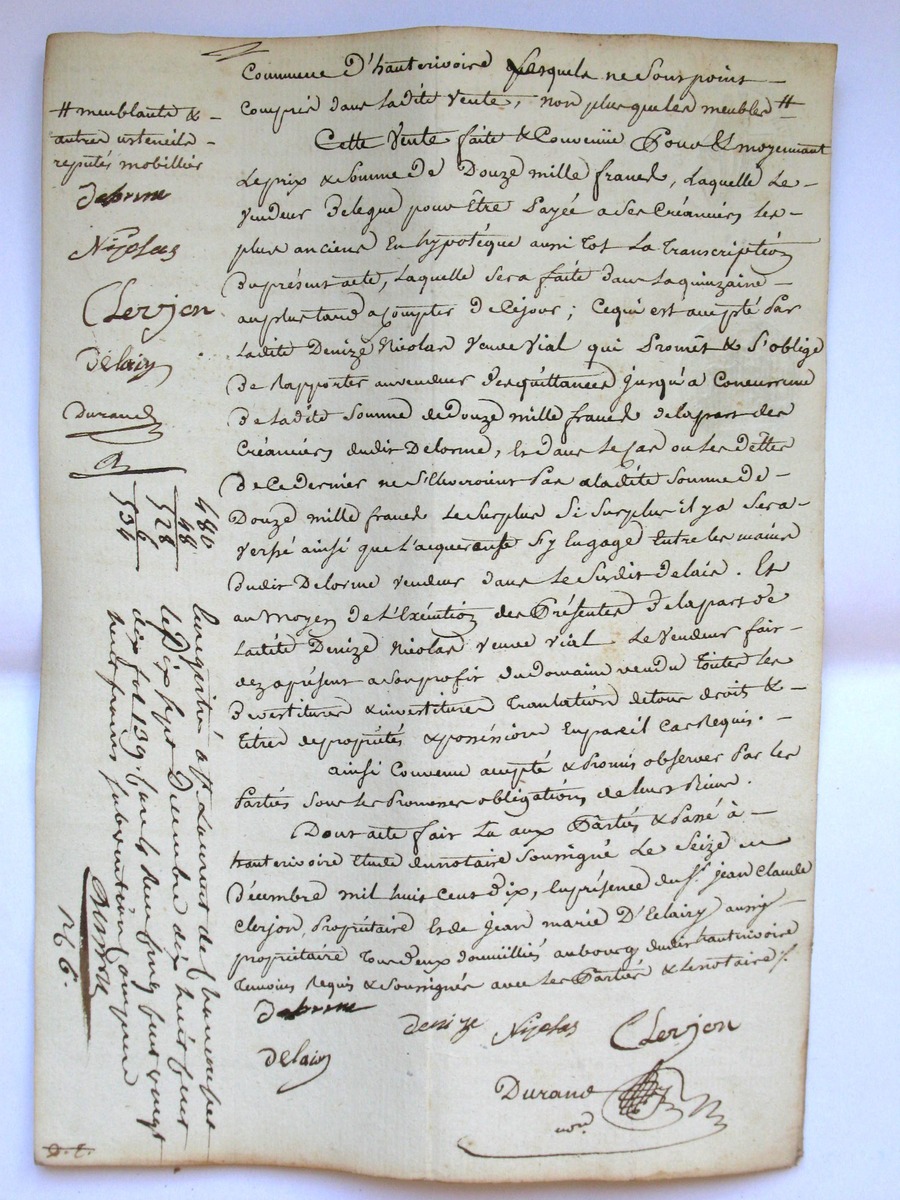 Commune D'hauterivoire lesquels ne sont point
Compris dans Ladite Vente, non plus que les meubles #
# meublants &
autres ustencils
reputés mobilliers
Delorme
Nicolas
Clerjon
Delairy
Durand
Cette Vente faite & Convenüe Pour & moyennant
Le prix & Somme De Douze mille francs, Laquelle Le
Vendeur Delegue pour Être Payée a Ses Créanciers les
plus anciens En hypotéque aussi tot La transcription
Du présent acte, Laquelle sera faite dans La quinzaine
au plus tard a Compter De Cejour; Ce qui est accepté Par
Ladite Denize Nicolas Veuve Vial qui Promêt & S'oblige
De Rapporter au vendeur Des quittances Jusqu'a Concurrence
De Ladite Somme de Douze mille francs de la part des
Créanciers dudit Delorme, Et dans le Cas ou les Dettes
De Ce dernier ne S'Eleveroient Pas a ladite Somme de
Douze mille francs Le Surplus Si Surplus il y a Sera
Versé ainsi que L'acquereuse S'y Engage Entre les mains
Dudit Delorme Vendeur dans Le Susdit Delais. Et
au moyen de L'Exécution des Présentes De la part de
Ladite Denize Nicolas Veuve Vial Le Vendeur fait
dez a présent a Son profit du Domaine vendu toutes les
Devestitures & investitures Translations de tous droits &
titres de propriétés & possessions En pareil Cas Requis.
ainsi Convenu accepté & Promis observer Par les
Parties Sous les Promesses obligations de leurs Biens.
Dont acte fait Lu aux Parties & Passé à
hauterivoire Etude du notaire Soussigné Le Seize
Décembre mil huit Cent Dix, En présence du Sr. jean Claude
Clerjon, Propriétaire Et de Jean marie D'Elairy aussi
propriétaire Tous deux Domicilliés au bourg dudit hauterivoire
Temoins Requis & Soussignés avec Les Parties & Le notaire
Delorme
denize Nicolas Clerjon
Delairy
Durand
nore.
480
48
528
6
534
Enregistré à St Laurent de Chamousset
le Dix Sept Décembre dix huit cent
dix fol 139
Reçu
subvention Comprise
D. E.